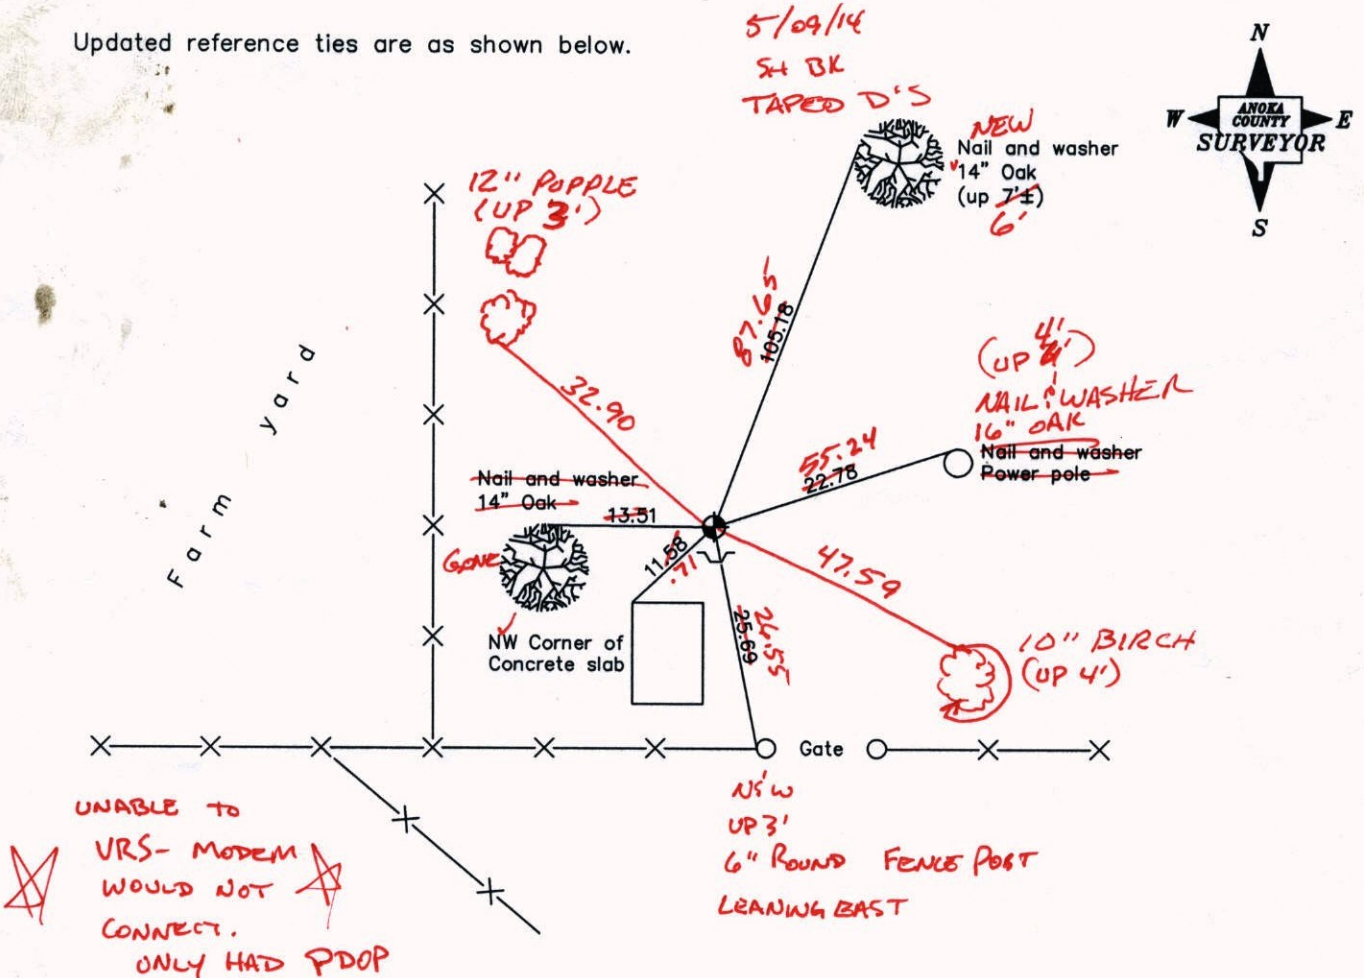 Updated reference ties are as shown below.
5/09/14
SH BK
TAPED D'S
N
W
ANOKA
COUNTY
SURVEYOR
E
S
NEW
Nail and washer
14" Oak
(up 7'±)
6'
12" POPPLE
(UP 3')
87.65
105.18
Farm yard
32.90
4'
(UP )
NAIL & WASHER
16" OAK
Nail and washer
Power pole
55.24
22.78
Nail and washer
14" Oak
13.51
GONE
11.58
.71
47.59
25.69
26.55
NW Corner of
Concrete slab
10" BIRCH
(UP 4')
Gate
N&W
UP 3'
6" ROUND FENCE POST
LEANING EAST
UNABLE TO
VRS- MODEM
WOULD NOT
CONNECT.
ONLY HAD PDOP